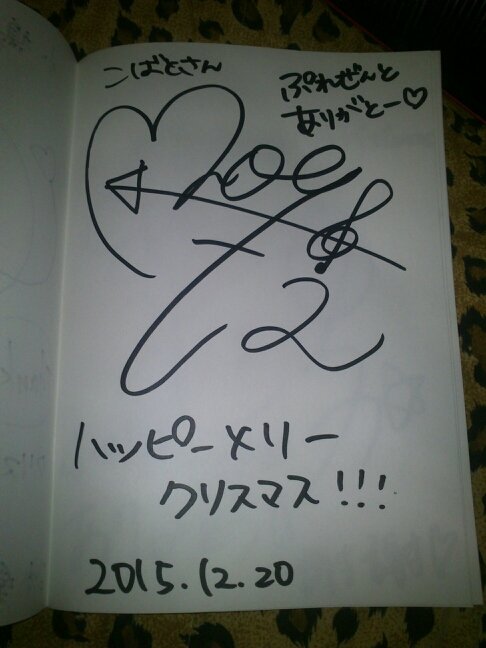 こばとさん
ぷれぜんと
ありがとー♡
ハッピーメリー
クリスマス!!!
2015.12.20